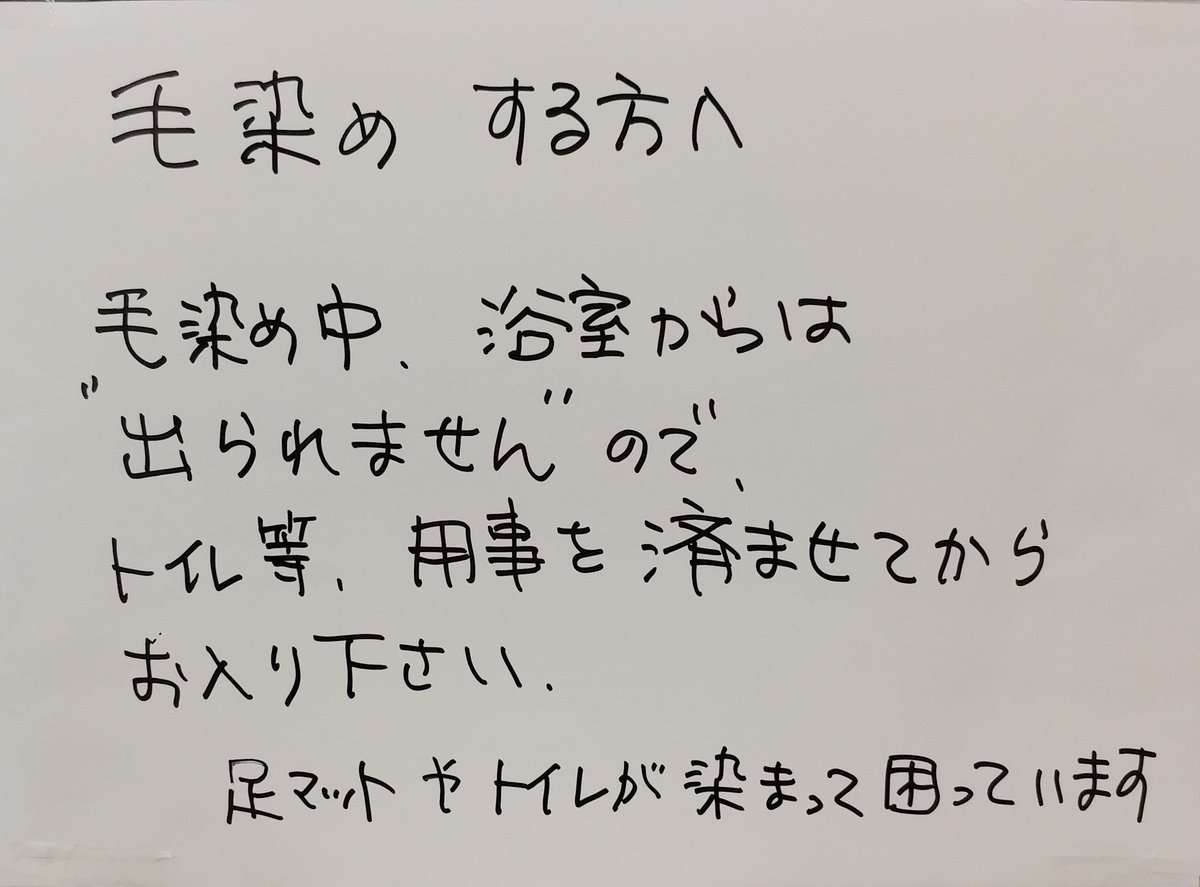 毛染め する方へ
毛染め中、浴室からは
"出られません"ので、
トイレ等、用事を済ませてから
お入り下さい.
足マットやトイレが染まって困っています